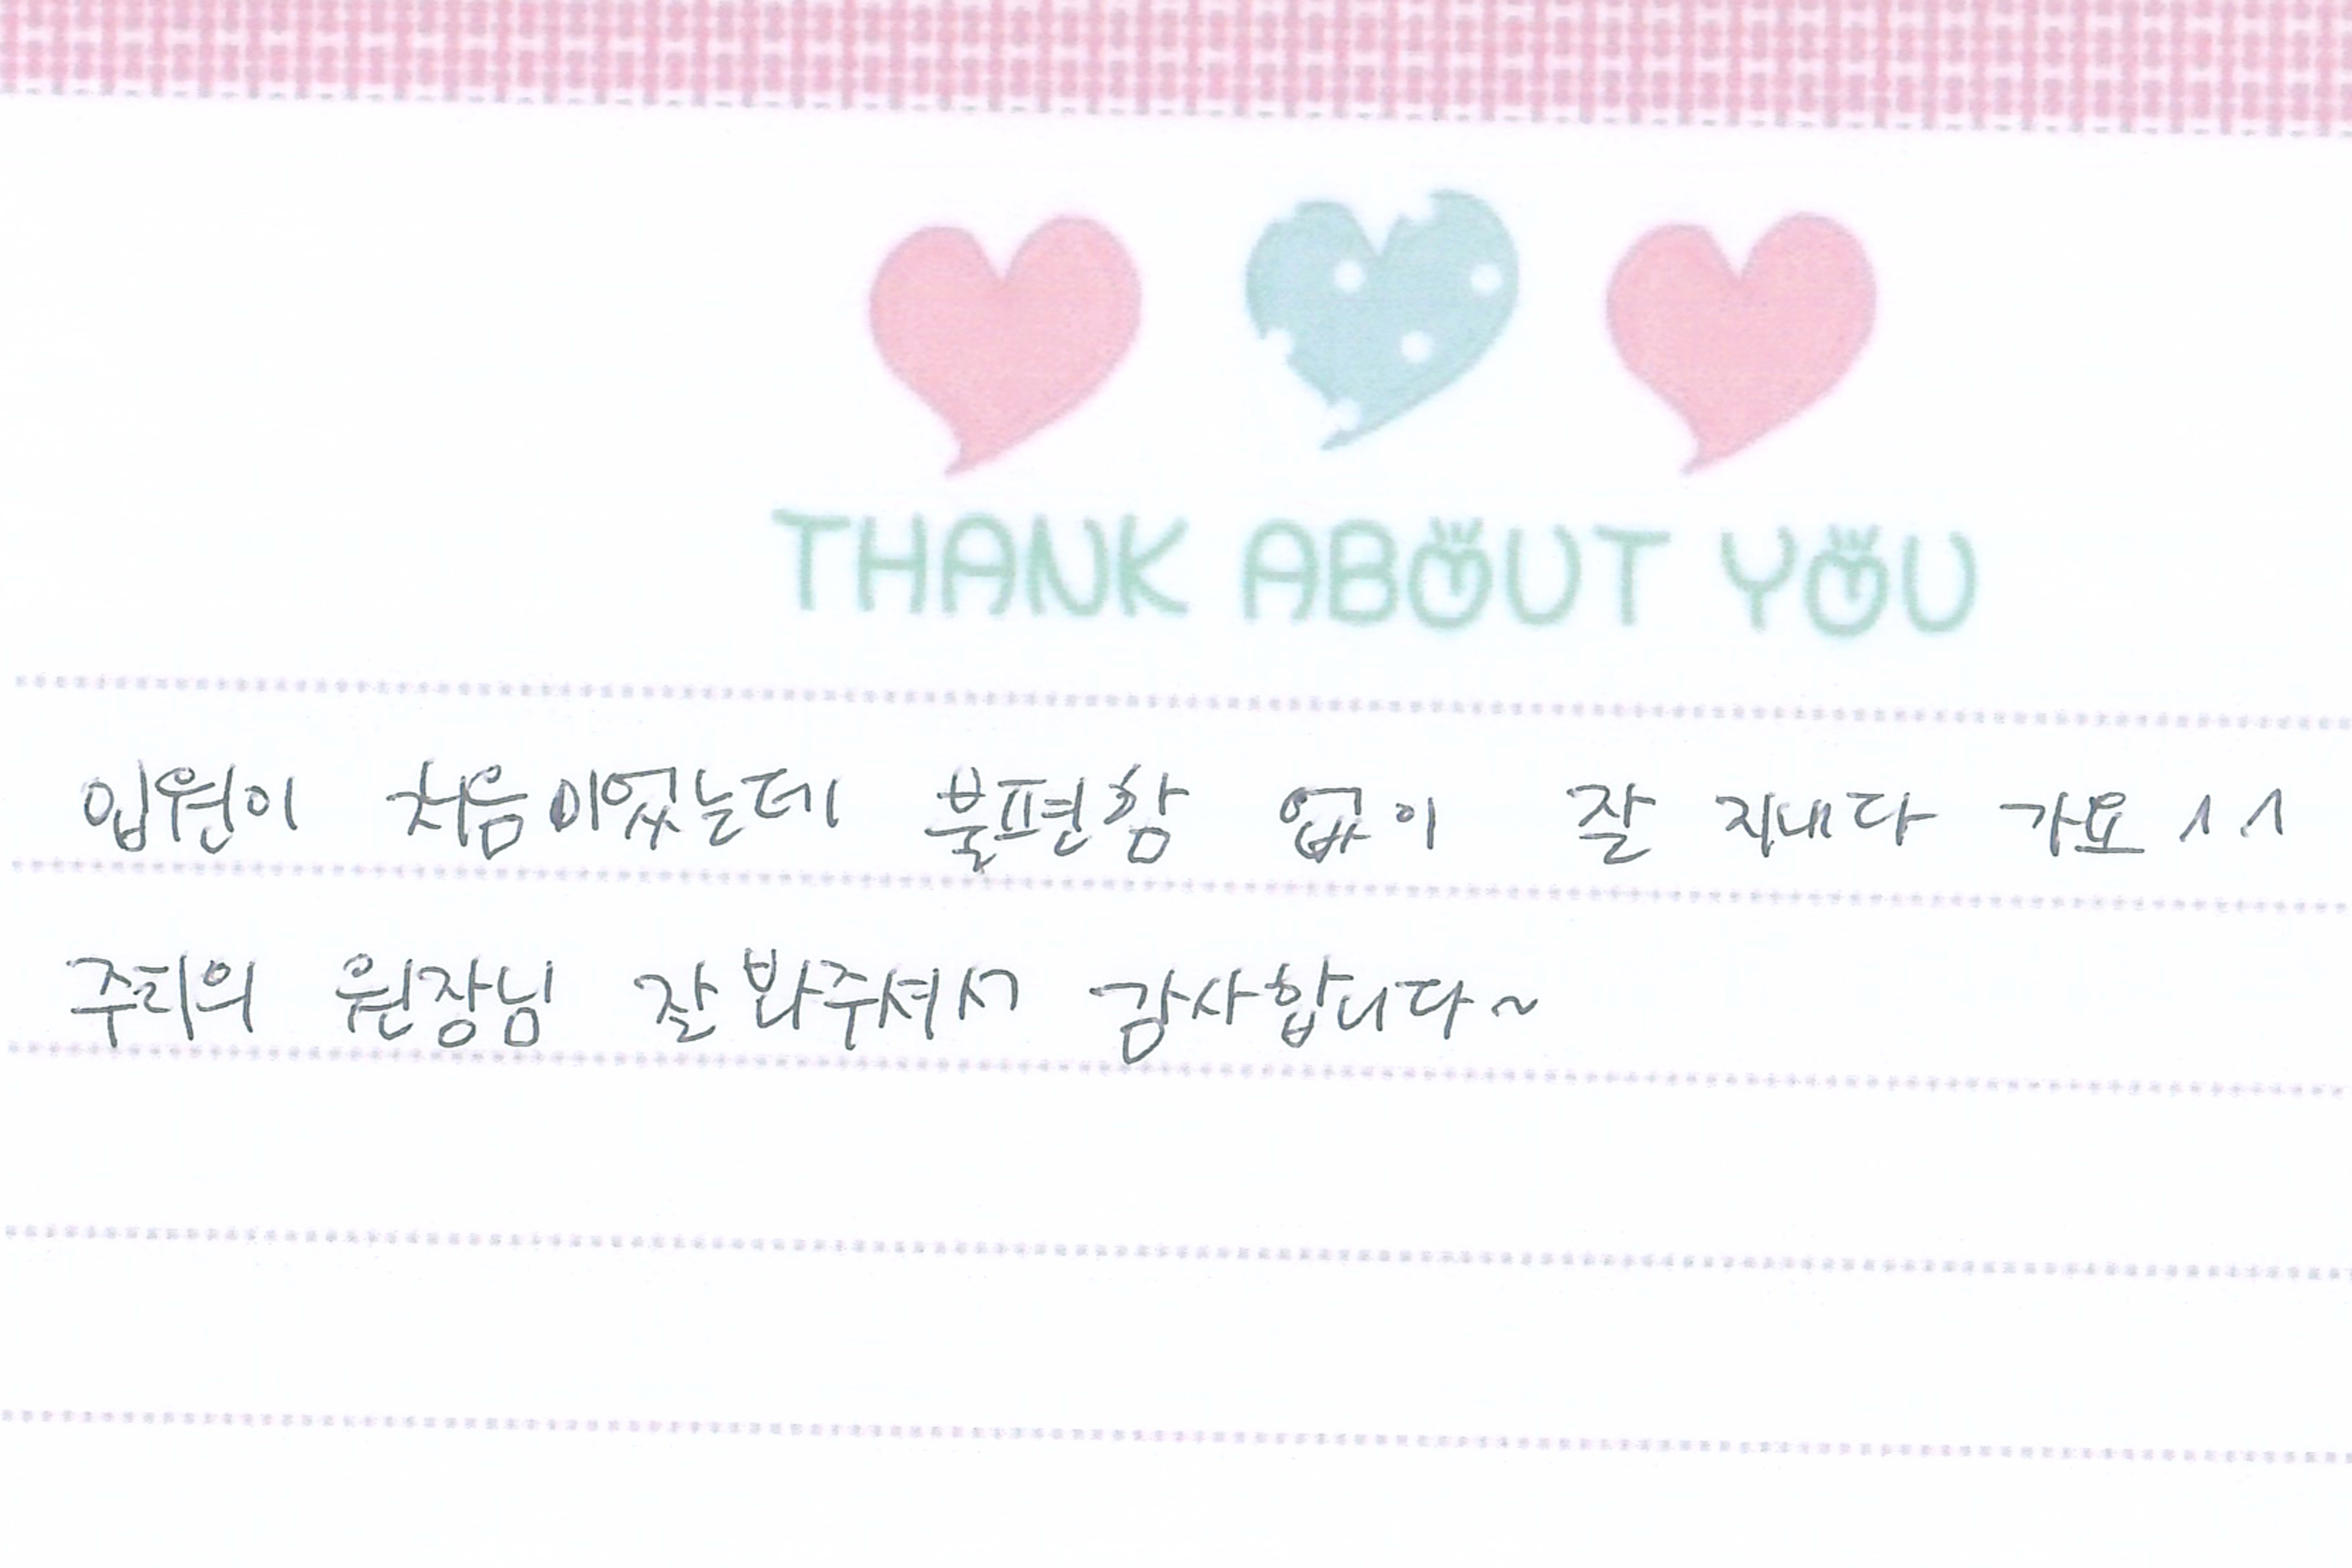 THANK ABOUT YOU
입원이 처음이었는데 불편함 없이 잘 지내다 가요 ^^
주치의 원장님 잘 봐주셔서 감사합니다~